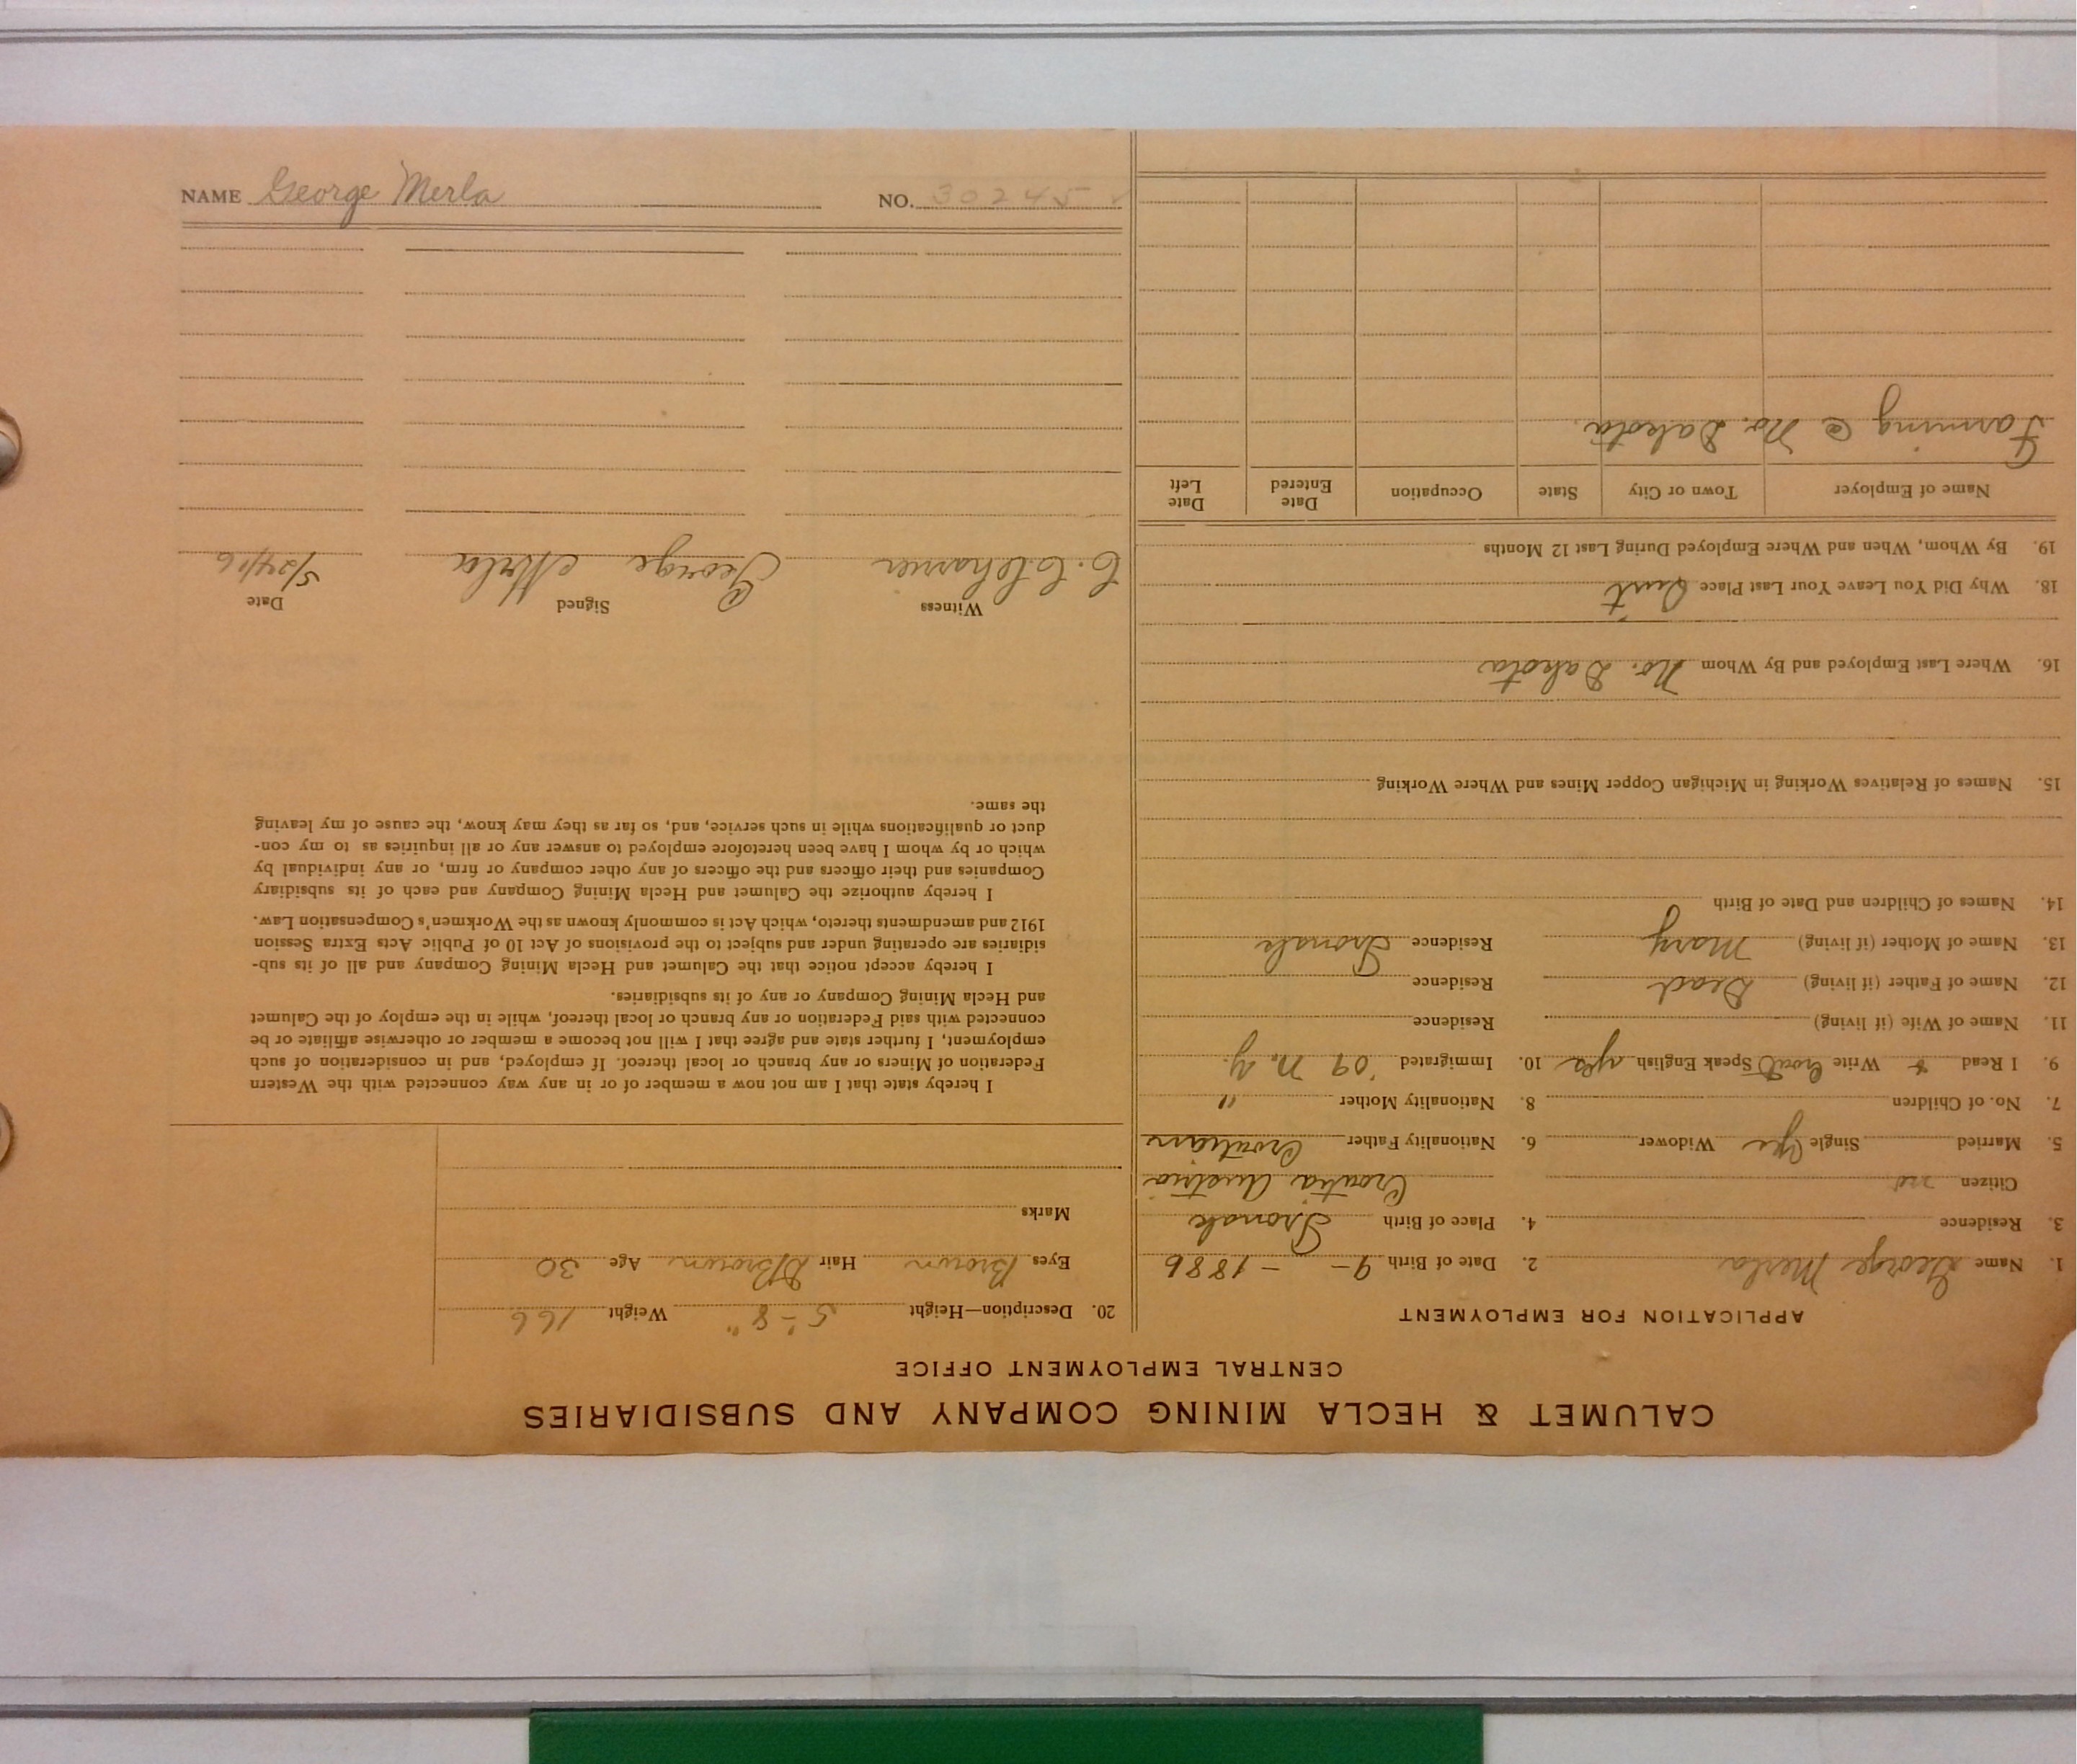 CALUMET & HECLA MINING COMPANY AND SUBSIDIARIES
CENTRAL EMPLOYMENT OFFICE
APPLICATION FOR EMPLOYMENT
1. Name George Merla 2. Date of Birth 9 - - 1886
3. Residence 4. Place of Birth
Citizen no Croatia Austria
5. Married Single Yes Widower 6. Nationality Father Croatian
7. No. of Children 8. Nationality Mother "
9. I Read & Write Croat Speak English yes 10. Immigrated '09 N. Y.
11. Name of Wife (if living) Residence
12. Name of Father (if living) Dead Residence
13. Name of Mother (if living) Mary Residence
14. Names of Children and Date of Birth
15. Names of Relatives Working in Michigan Copper Mines and Where Working
16. Where Last Employed and By Whom No. Dakota
18. Why Did You Leave Your Last Place Quit
19. By Whom, When and Where Employed During Last 12 Months
Name of Employer Town or City State Occupation Date Entered Date Left
Farming @ No. Dakota
20. Description—Height 5 - 8" Weight 166
Eyes Brown Hair D Brown Age 30
Marks
I hereby state that I am not now a member of or in any way connected with the Western
Federation of Miners or any branch or local thereof. If employed, and in consideration of such
employment, I further state and agree that I will not become a member or otherwise affiliate or be
connected with said Federation or any branch or local thereof, while in the employ of the Calumet
and Hecla Mining Company or any of its subsidiaries.
I hereby accept notice that the Calumet and Hecla Mining Company and all of its sub-
sidiaries are operating under and subject to the provisions of Act 10 of Public Acts Extra Session
1912 and amendments thereto, which Act is commonly known as the Workmen's Compensation Law.
I hereby authorize the Calumet and Hecla Mining Company and each of its subsidiary
Companies and their officers and the officers of any other company or firm, or any individual by
which or by whom I have been heretofore employed to answer any or all inquiries as to my con-
duct or qualifications while in such service, and, so far as they may know, the cause of my leaving
the same.
Witness Signed Date
George Merla 5/24/16
NAME George Merla NO. 30245